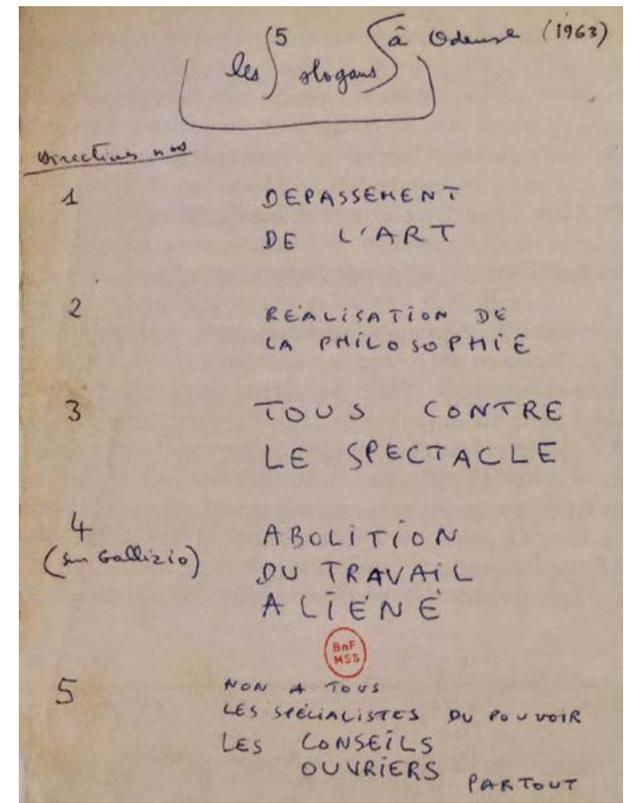 les 5 slogans à Odense (1963)
Directives nos
1 DEPASSEMENT
DE L'ART
2 REALISATION DE
LA PHILOSOPHIE
3 TOUS CONTRE
LE SPECTACLE
4 ABOLITION
(sur Gallizio) DU TRAVAIL
ALIÉNÉ
BnF
MSS
5 NON A TOUS
LES SPÉCIALISTES DU POUVOIR
LES CONSEILS
OUVRIERS PARTOUT